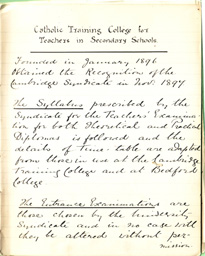 Catholic Training College for
Teachers in Secondary Schools.
Founded in January 1896
Obtained the Recognition of the
Cambridge Syndicate in Nov. 1897
The Syllabus prescribed by the
Syndicate for the Teachers' Examina-
tion for both Theoretical and Practical
Diplomas is followed and the
details of time-table are adapted
from those in use at the Cambridge
Training College and at Bedford
College
The Entrance Examinations are
those chosen by the University
Syndicate and in no case will
they be altered without per-
mission